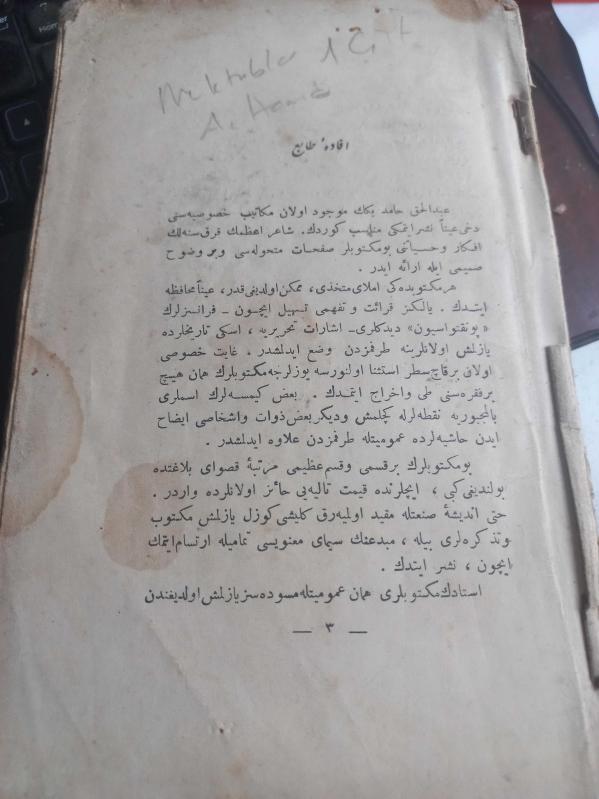 Mektublar 1 çilt
A. Hamid
افادۀ طابع
عبدالحق حامد بكك موجود اولان مكاتيب خصوصيه‌سنى
دخى عيناً نشر ايتمكى مناسب كوردك. شاعر اعظمك قرق سنه‌لك
افكار و حسياتنى بومكتوبلر صفحات متحوله‌سى و بر وضوح
صميمى ايله ارائه ايدر .
هر مكتوبده‌كى املاى متخذى، ممكن اولديغى قدر، عيناً محافظه
ايتدك . يالكز قرائت و تفهمى تسهيل ايچون ـ فرانسزلرك
«پونقتواسيون» ديدكلرى ـ اشارات تحريريه ، اسكى تاريخلرده
يازلمش اولانلرينه طرفمزدن وضع ايدلشدر . غايت خصوصى
اولان برقاچ سطر استثنا اولنورسه يوزلرجه مكتوبلرك همان هيچ
برفقره‌سنى طى و اخراج ايتمدك . بعض كيمسه‌لرك اسملرى
بالمجبوريه نقطه‌لرله كچلمش و ديكر بعض ذوات و اشخاصى ايضاح
ايدن حاشيه‌لرده عموميتله طرفمزدن علاوه ايدلشدر .
بومكتوبلرك برقسمى و قسم عظيمى مرتبۀ قصواى بلاغتده
بولنديغى كبى ، ايچلرنده قيمت تاليه‌يى حائز اولانلرده واردر .
حتى انديشۀ صنعتله مقيد اولميه‌رق كليشى كوزل يازلمش مكتوب
و تذكره‌لرى بيله ، مبدعنك سيماى معنويسى تماميله ارتسام ايتمك
ايچون ، نشر ايتدك .
استادك مكتوبلرى همان عموميتله مسوده‌سز يازلمش اولديغندن
— ٣ —